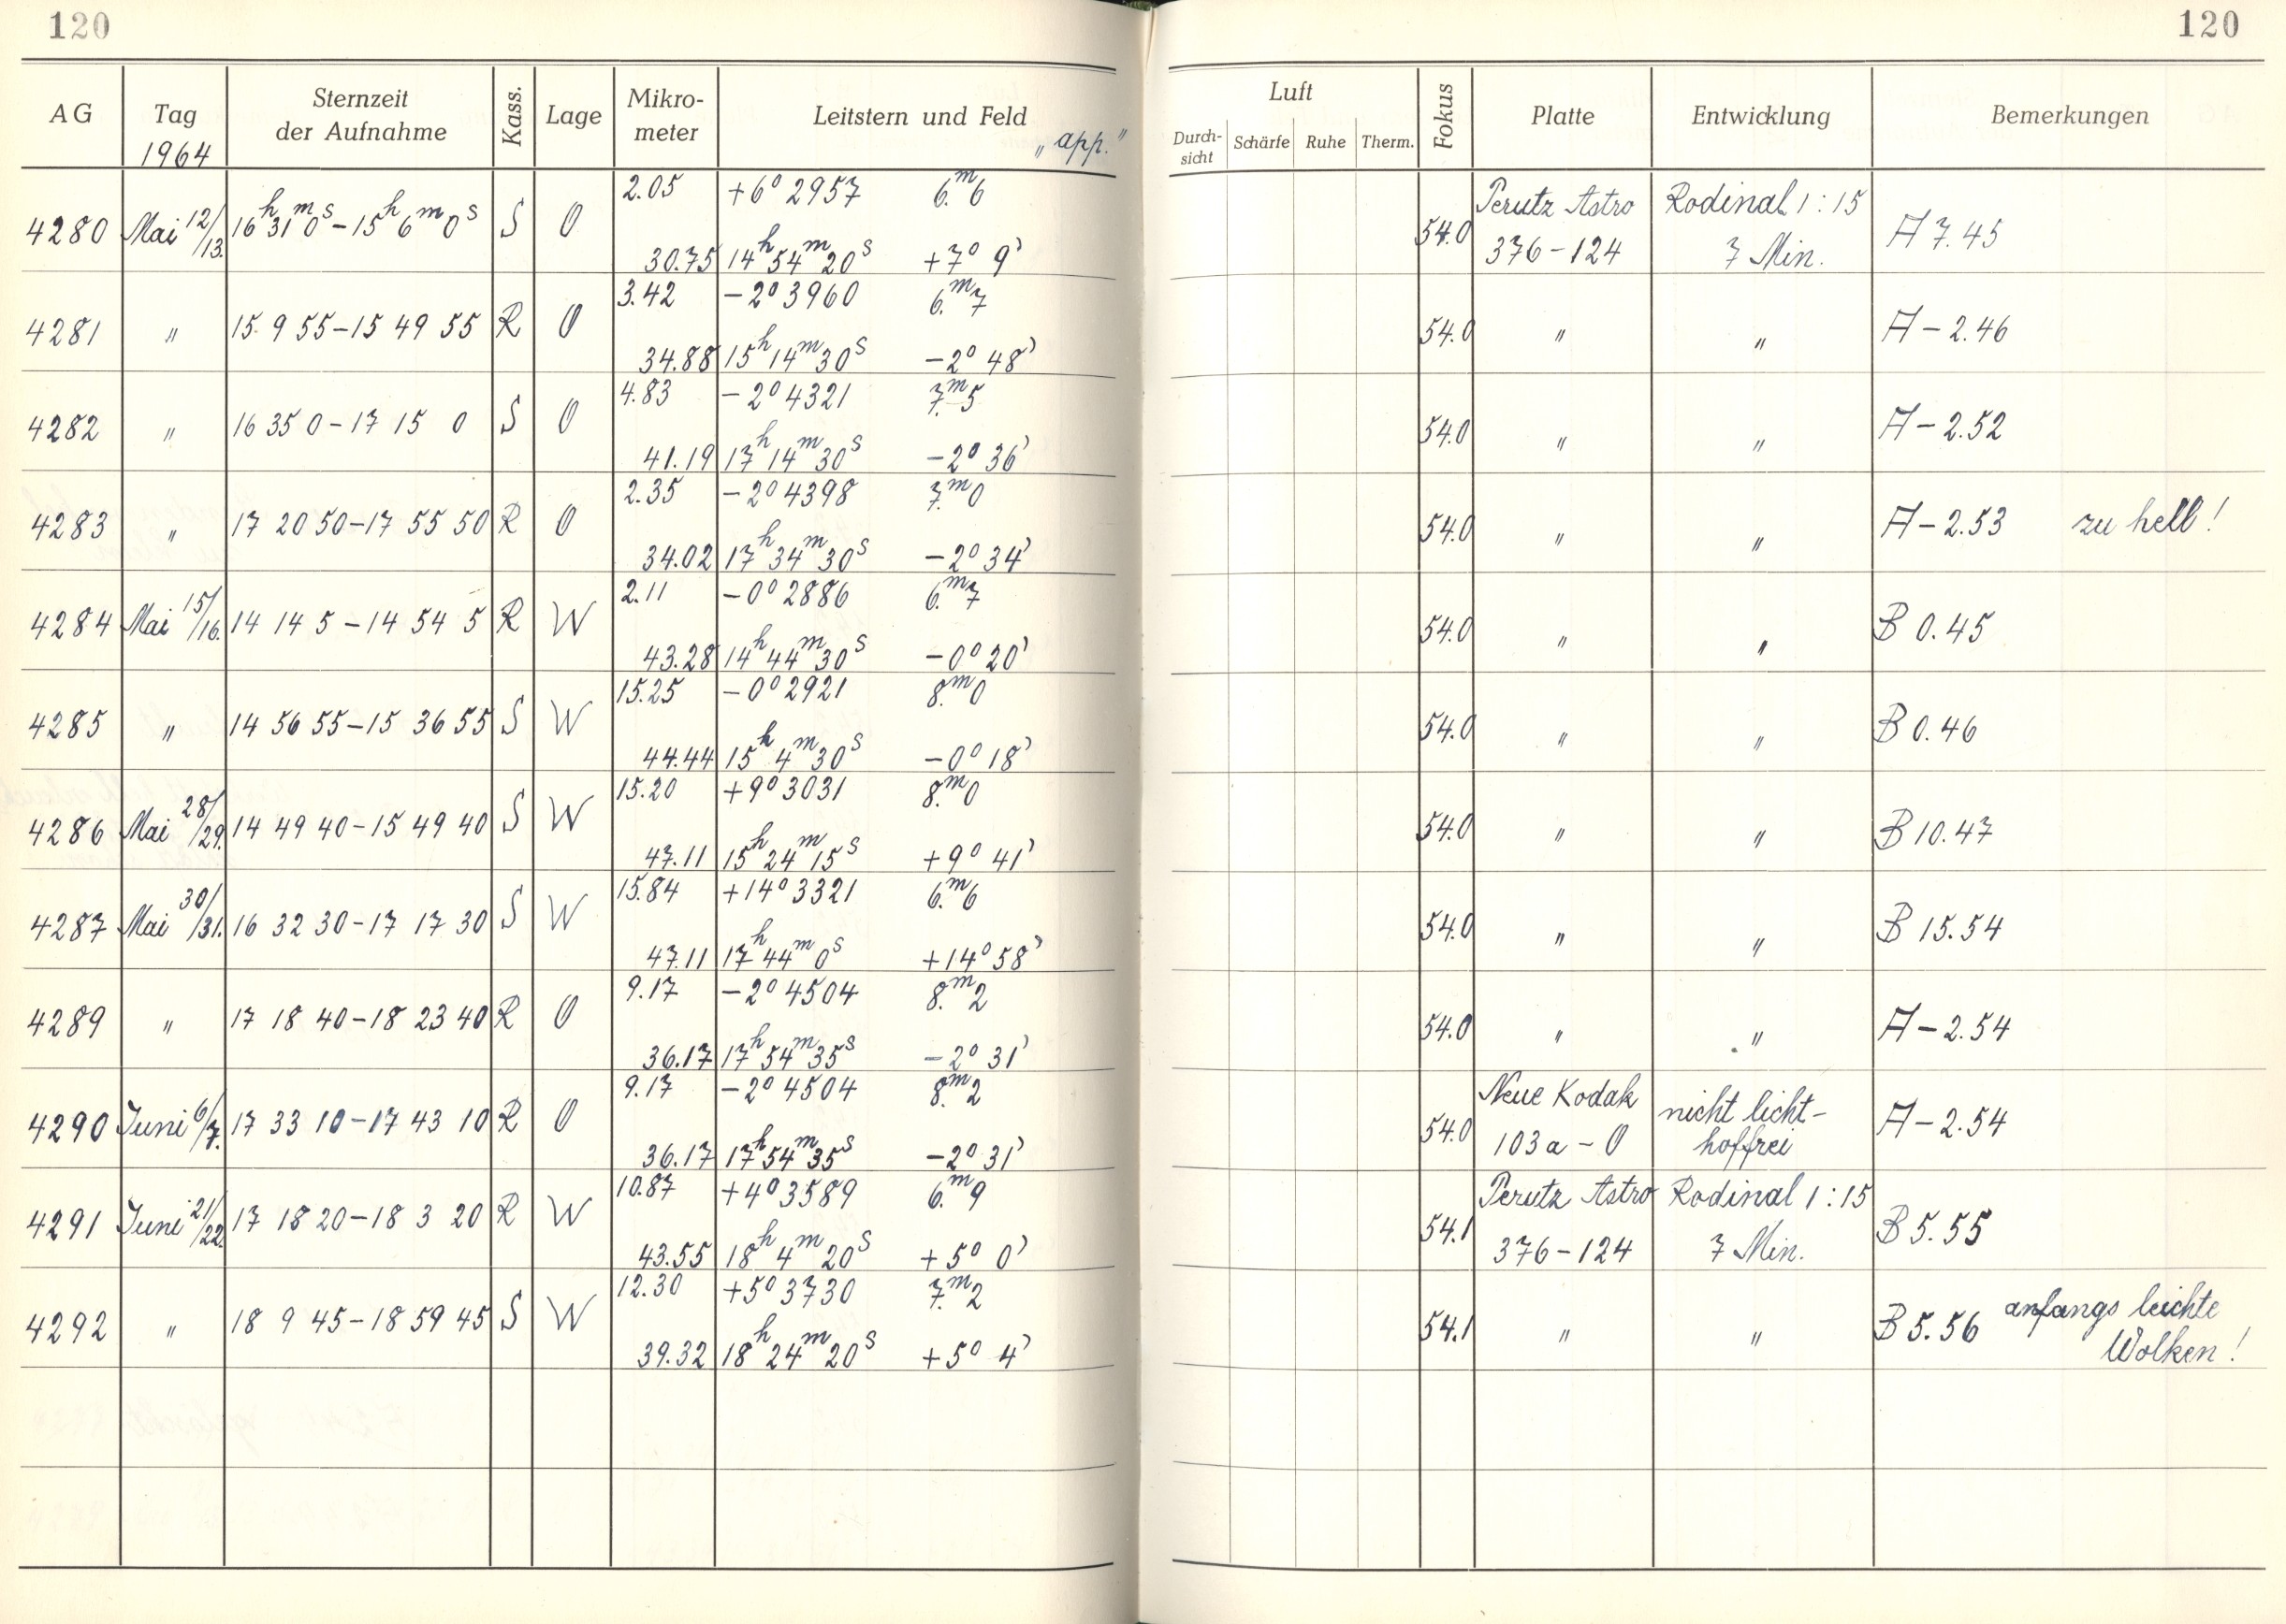 120
120
AG Tag Sternzeit der Aufnahme Kass. Lage Mikro-meter Leitstern und Feld "app."
1964
Luft Durch-sicht Schärfe Ruhe Therm. Fokus Platte Entwicklung Bemerkungen
2.05 +6° 2957 6.ᵐ6 Perutz Astro Rodinal 1:15
4280 Mai 12/13. 16ʰ31ᵐ0ˢ–15ʰ6ᵐ0ˢ S O 54.0 A 7.45
30.75 14ʰ54ᵐ20ˢ +7° 9' 376–124 7 Min.
3.42 –2° 3960 6.ᵐ7
4281 " 15 9 55–15 49 55 R O 54.0 " " A –2.46
34.88 15ʰ14ᵐ30ˢ –2° 48'
4.83 –2° 4321 7.ᵐ5
4282 " 16 35 0–17 15 0 S O 54.0 " " A –2.52
41.19 17ʰ14ᵐ30ˢ –2° 36'
2.35 –2° 4398 7.ᵐ0
4283 " 17 20 50–17 55 50 R O 54.0 " " A –2.53 zu hell!
34.02 17ʰ34ᵐ30ˢ –2° 34'
2.11 –0° 2886 6.ᵐ7
4284 Mai 15/16. 14 14 5–14 54 5 R W 54.0 " " B 0.45
43.28 14ʰ44ᵐ30ˢ –0° 20'
15.25 –0° 2921 8.ᵐ0
4285 " 14 56 55–15 36 55 S W 54.0 " " B 0.46
44.44 15ʰ4ᵐ30ˢ –0° 18'
15.20 +9° 3031 8.ᵐ0
4286 Mai 28/29. 14 49 40–15 49 40 S W 54.0 " " B 10.47
47.11 15ʰ24ᵐ15ˢ +9° 41'
15.84 +14° 3321 6.ᵐ6
4287 Mai 30/31. 16 32 30–17 17 30 S W 54.0 " " B 15.54
47.11 17ʰ44ᵐ0ˢ +14° 58'
9.17 –2° 4504 8.ᵐ2
4289 " 17 18 40–18 23 40 R O 54.0 " " A –2.54
36.17 17ʰ54ᵐ35ˢ –2° 31'
9.17 –2° 4504 8.ᵐ2 Neue Kodak nicht licht-
4290 Juni 6/7. 17 33 10–17 43 10 R O 54.0 A –2.54
36.17 17ʰ54ᵐ35ˢ –2° 31' 103a–O hoffrei
10.87 +4° 3589 6.ᵐ9 Perutz Astro Rodinal 1:15
4291 Juni 21/22. 17 18 20–18 3 20 R W 54.1 B 5.55
43.55 18ʰ4ᵐ20ˢ +5° 0' 376–124 7 Min.
12.30 +5° 3730 7.ᵐ2
4292 " 18 9 45–18 59 45 S W 54.1 " " B 5.56 anfangs leichte
39.32 18ʰ24ᵐ20ˢ +5° 4' Wolken!